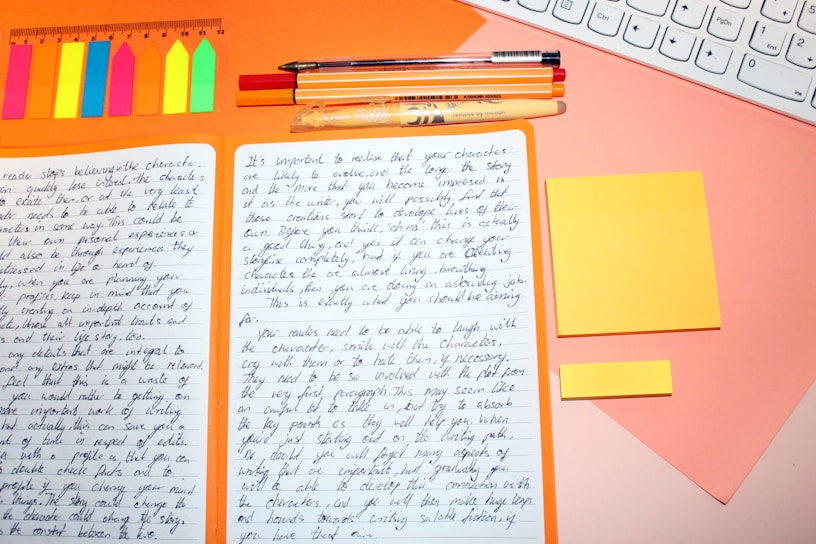 1 2 3 4 5 6 7 8 9 10 11 12
Ctrl
PgDn
End
1
2
5
0
reader stops believing in the character.
can quickly lose interest. The characters
to excite them, or at the very least
reader needs to be able to relate to
in some way. This could be
their own personal experiences or
could also be through experiences they
in life or heard of.
when you are planning your
profiles, keep in mind that you
creating an in-depth account of
those all important traits and
and their life story, too.
any details that are integral to
and any extras that might be relevant.
feel that this is a waste of
you would rather be getting on
more important work of writing
but actually, this can save you a
of time in respect of edits.
with a profile is that you can
double check facts and to
profile if you change your mind
things. The story could change the
the character could change the story.
is the constant between the two.
It's important to realise that your characters
are likely to evolve, and the longer the story
and the more that you become immersed in
it as the writer, you will possibly find that
these creations start to develop lives of their
own. Before you think, "oh no" this is actually
a good thing, and yes it can change your
storyline completely, but if you are creating
characters the are almost living, breathing
individuals, then you are doing an astounding job.
This is exactly what you should be aiming
for.
Your readers need to be able to laugh with
the character, smile with the characters,
cry with them or to hate them, if necessary.
They need to be so involved with the plot from
the very first paragraph. This may seem like
an awful lot to take in, but try to absorb
the key points as they will help you. When
you're just starting out on the writing path,
no doubt, you will forget many aspects of
writing that are important, but gradually you
will be able to develop this connection with
the characters, and you will then make huge leaps
and bounds towards writing salable fiction, if
you have them own.